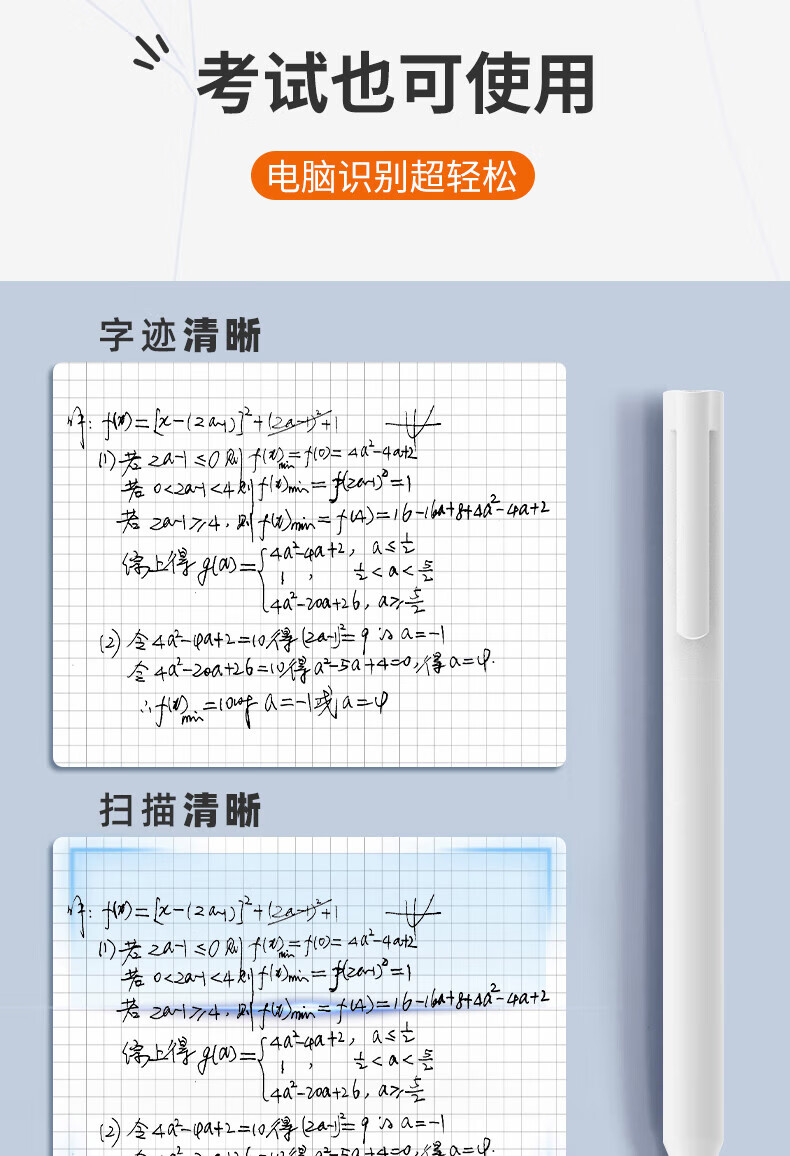 考试也可使用
电脑识别超轻松
字迹清晰
解: f(x)=[x-(2a-1)]²+(2a-1)²+1
(1) 若 2a-1≤0 则 f(x)min=f(0)=4a²-4a+2
若 0<2a-1<4 则 f(x)min=f(2a-1)²=1
若 2a-1≥4, 则 f(x)min=f(4)=16-16a+8+4a²-4a+2
综上得 g(a)={4a²-4a+2, a≤1/2
1, 1/2<a<5/2
4a²-20a+26, a≥5/2
(2) 令 4a²-4a+2=10 得 (2a-1)²=9 ∴ a=-1
令 4a²-20a+26=10 得 a²-5a+4=0, 得 a=4.
∴ f(x)min=10时 a=-1或 a=4
扫描清晰
解: f(x)=[x-(2a-1)]²+(2a-1)²+1
(1) 若 2a-1≤0 则 f(x)min=f(0)=4a²-4a+2
若 0<2a-1<4 则 f(x)min=f(2a-1)²=1
若 2a-1≥4, 则 f(x)min=f(4)=16-16a+8+4a²-4a+2
综上得 g(a)={4a²-4a+2, a≤1/2
1, 1/2<a<5/2
4a²-20a+26, a≥5/2
(2) 令 4a²-4a+2=10 得 (2a-1)²=9 ∴ a=-1
令 4a²-20a+26=10 得 a²-5a+4=0, 得 a=4.